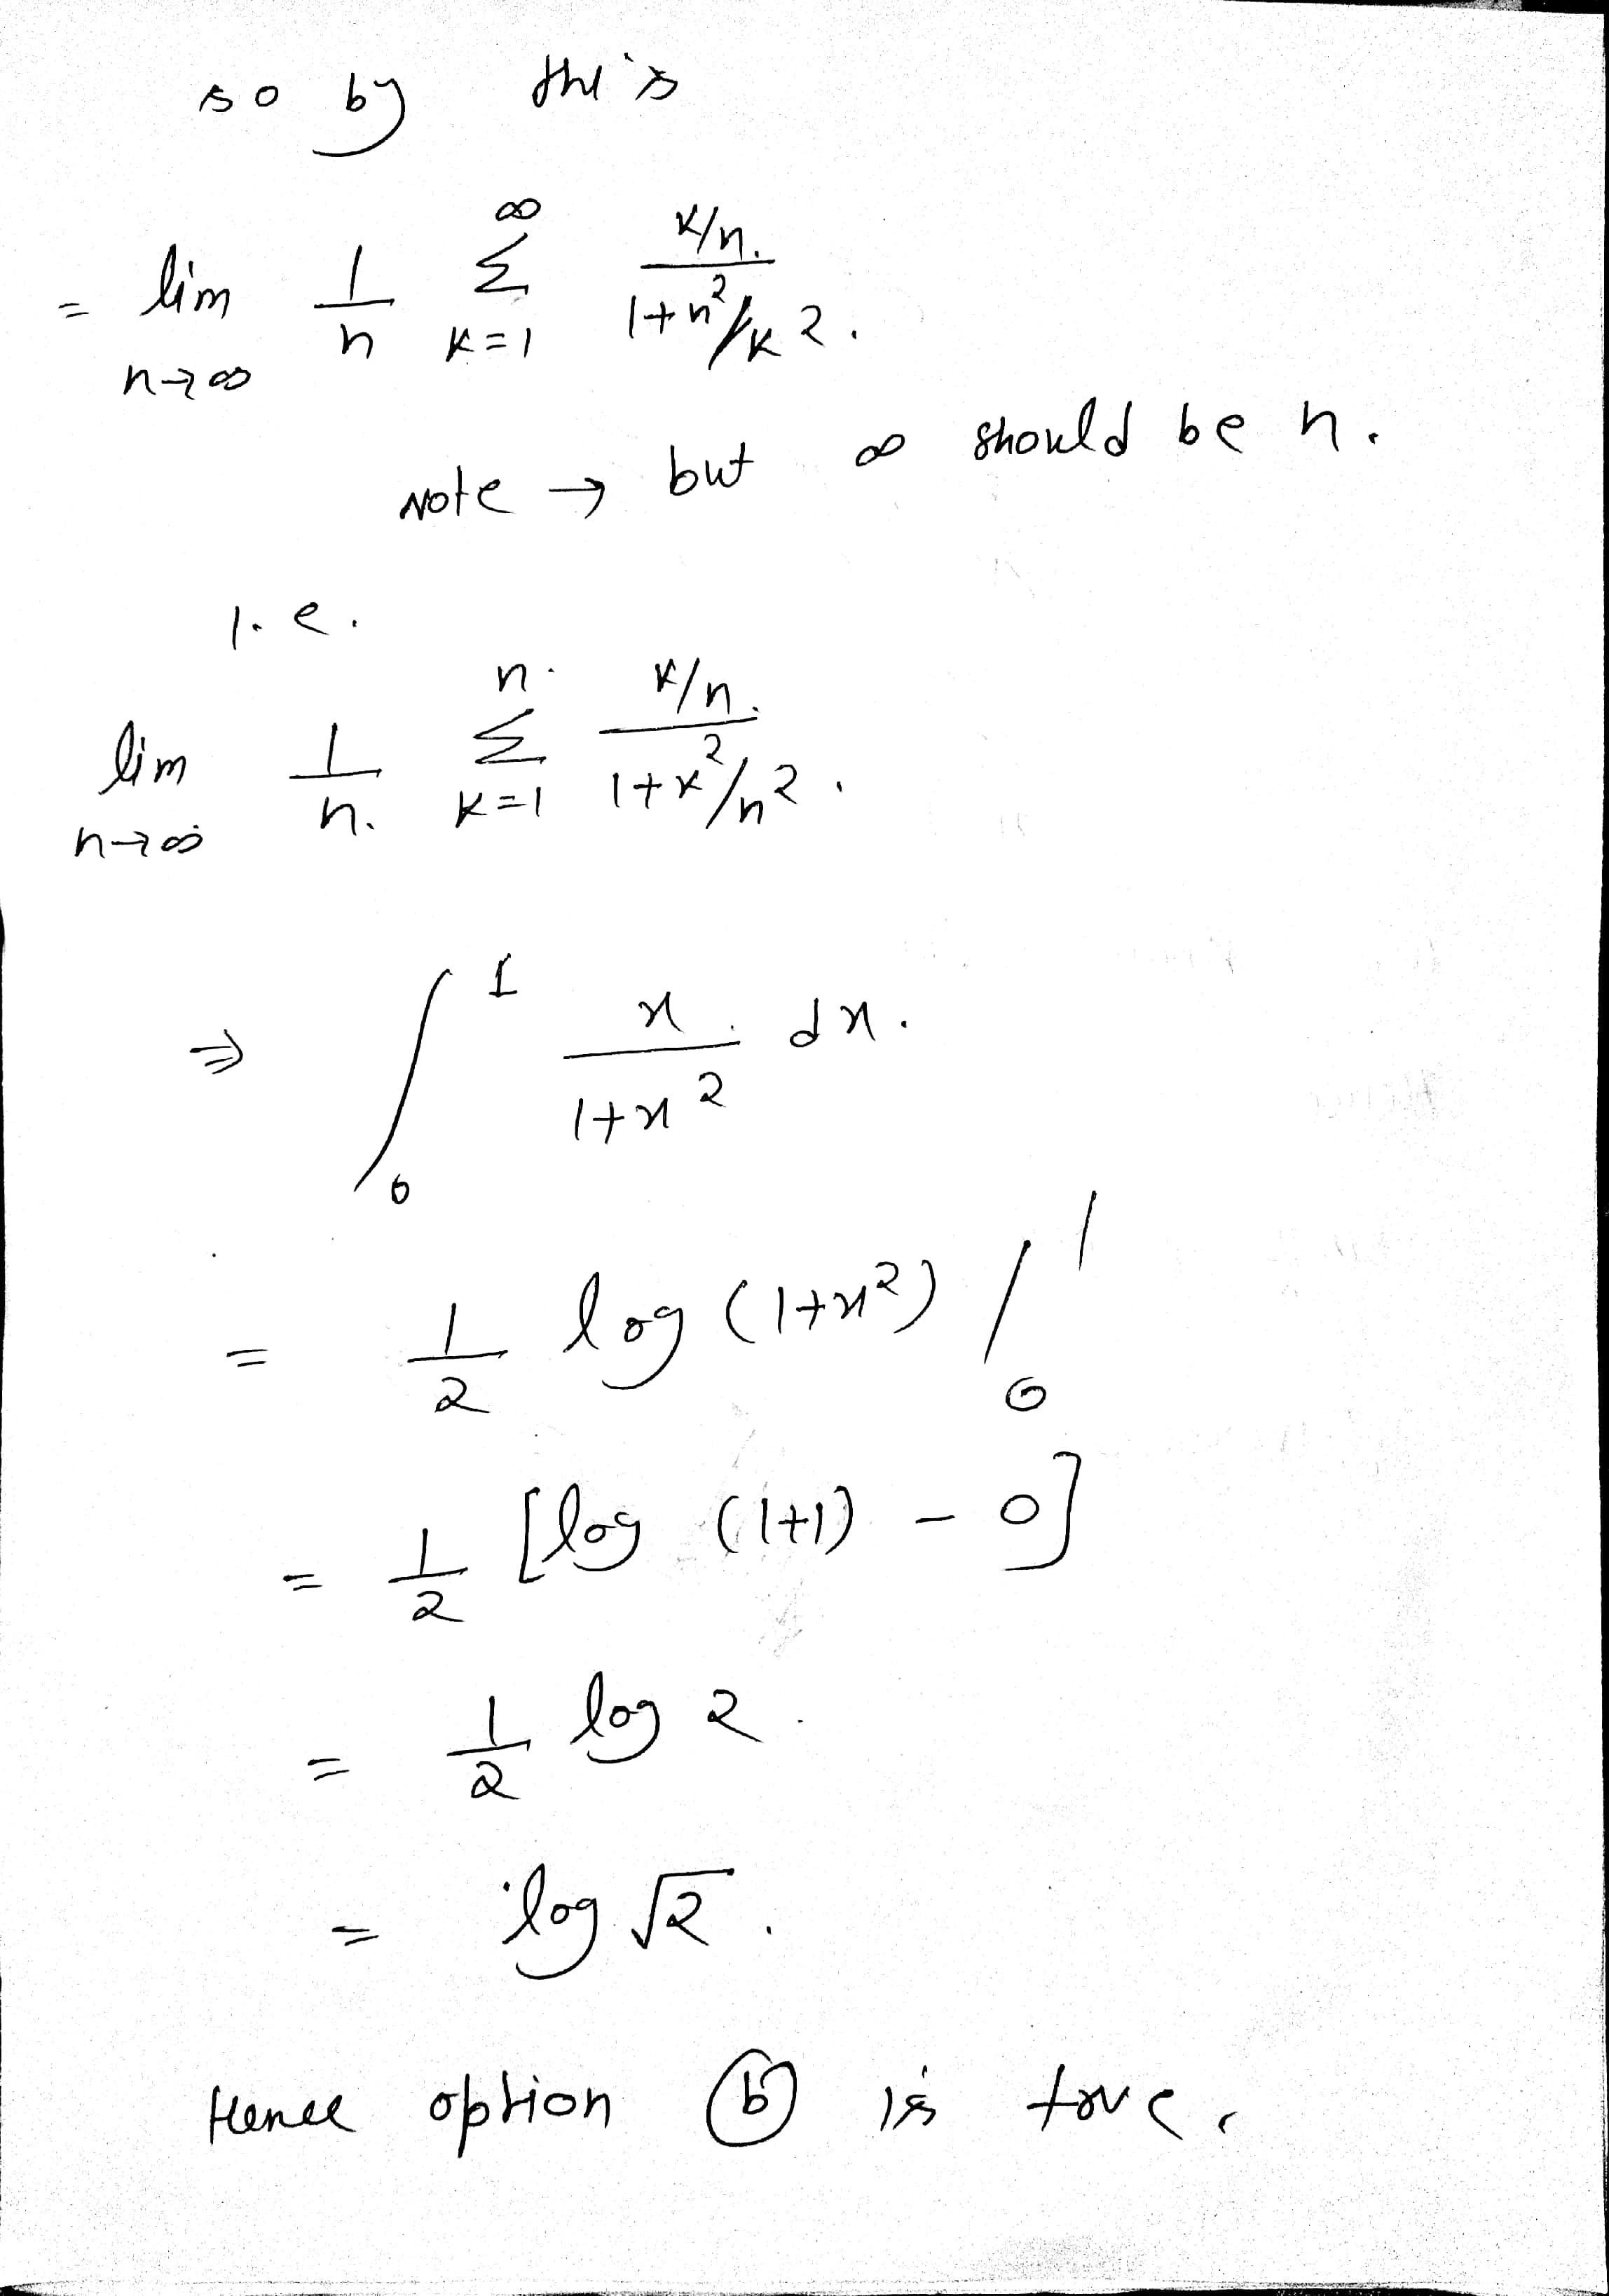 so by this
= lim n→∞ 1/n ∞ Σ k=1 k/n. / 1+n²/k².
Note → but ∞ should be n.
i.e.
lim n→∞ 1/n. n. Σ k=1 k/n. / 1+k²/n².
⇒ ∫ 0 1 x. / 1+x² dx.
= 1/2 log (1+x²) / 1 0
= 1/2 [log (1+1) - 0]
= 1/2 log 2.
= log √2.
Hence option (b) is true.